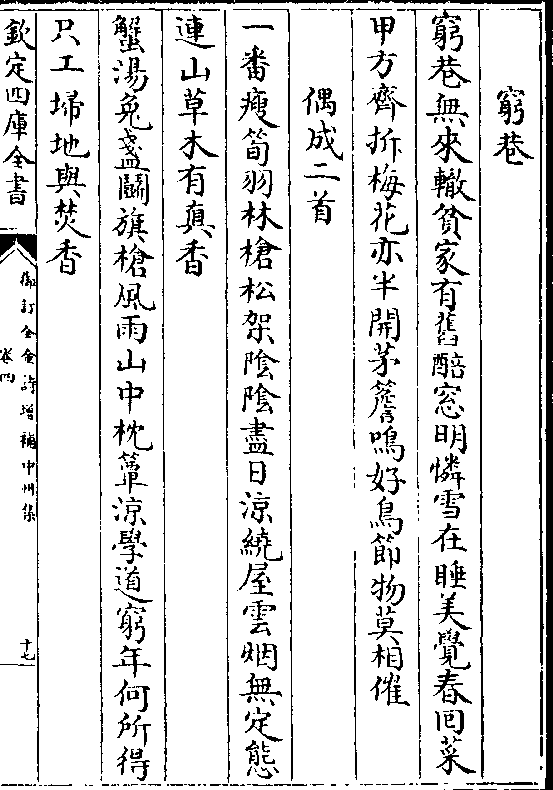 窮巷
窮巷無來轍貧家有舊醅窓明憐雪在睡美覺春囘菜
甲方齊拆梅花亦半開茅簷鳴好鳥節物莫相催
偶成二首
一番瘦筍羽林槍松架陰陰盡日涼繞屋雲烟無定態
連山草木有真香
蟹湯兔盞鬭旗槍風雨山中枕簟涼學道窮年何所得
只工埽地與焚香
欽定四庫全書
御訂全金詩增補中州集
卷四
十七